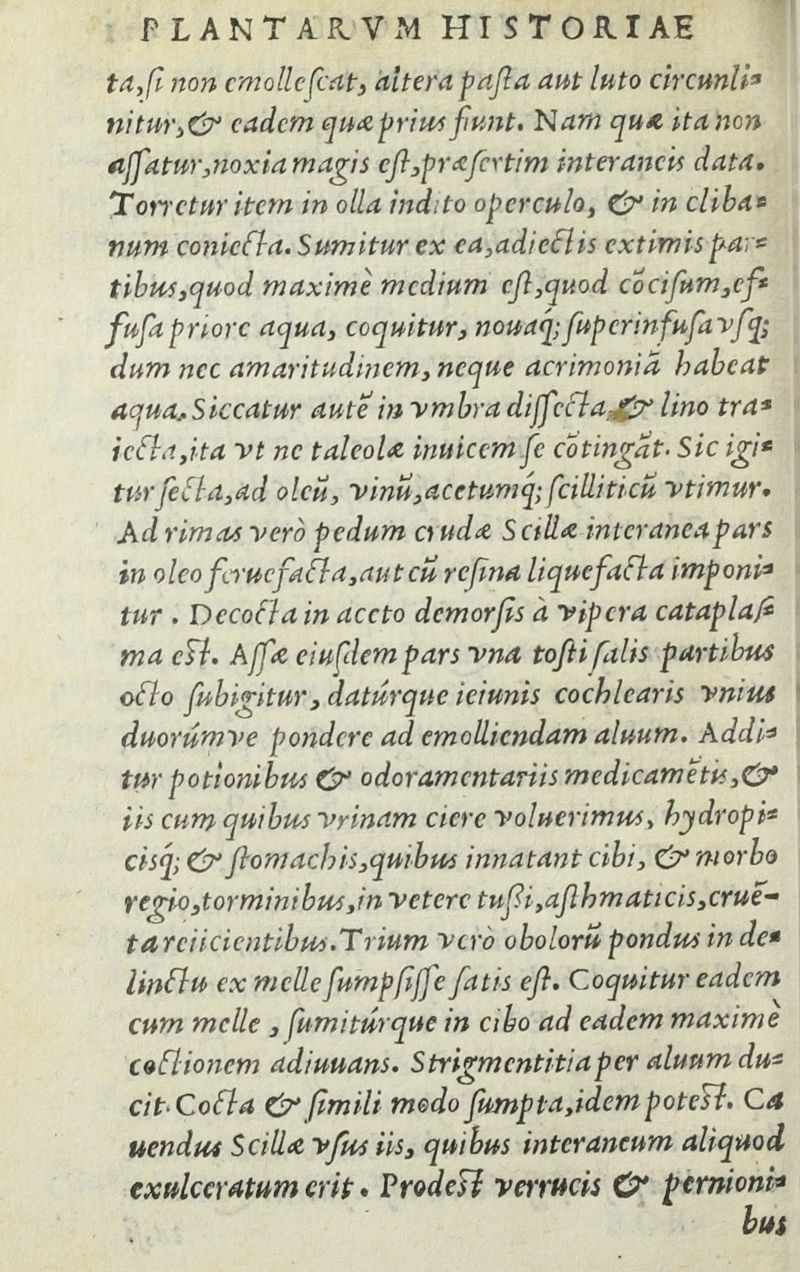 PLANTARVM HISTORIAE
ta, ſi non emolleſcat, altera paſta aut luto circunli-
nitur, & eadem quæ prius fiunt. Nam quæ ita non
aſſatur, noxia magis eſt, præſertim interaneis data.
Torretur item in olla indito operculo, & in cliba-
num coniecta. Sumitur ex ea, adiectis extimis par-
tibus, quod maximè medium eſt, quod cōciſum, ef-
fuſa priore aqua, coquitur, nouaq́; ſuperinfuſa vſq;
dum nec amaritudinem, neque acrimoniā habeat
aqua. Siccatur autē in vmbra diſſecta, & lino tra-
iecta, ita vt ne taleolæ inuicem ſe cōtingāt. Sic igi-
tur ſecta, ad oleū, vinū, acetumq́; ſcilliticū vtimur.
Ad rimas verò pedum crudæ Scillæ interanea pars
in oleo feruefacta, aut cū reſina liquefacta imponi-
tur. Decocta in aceto demorſis à vipera cataplaſ-
ma eſt. Aſſæ eiuſdem pars vna toſti ſalis partibus
octo ſubigitur, datúrque ieiunis cochlearis vnius
duorúmve pondere ad emolliendam aluum. Addi-
tur potionibus & odoramentariis medicamētis, &
iis cum quibus vrinam ciere voluerimus, hydropi-
cisq́; & ſtomachis, quibus innatant cibi, & morbo
regio, torminibus, in vetere tuſſi, aſthmaticis, cruē-
ta reiicientibus. Trium verò obolorū pondus in de-
linctu ex melle ſumpſiſſe ſatis eſt. Coquitur eadem
cum melle, ſumitúrque in cibo ad eadem maximè
coctionem adiuuans. Strigmentitia per aluum du-
cit. Cocta & ſimili modo ſumpta, idem poteſt. Ca
uendus Scillæ vſus iis, quibus interaneum aliquod
exulceratum erit. Prodeſt verrucis & pernioni-
bus